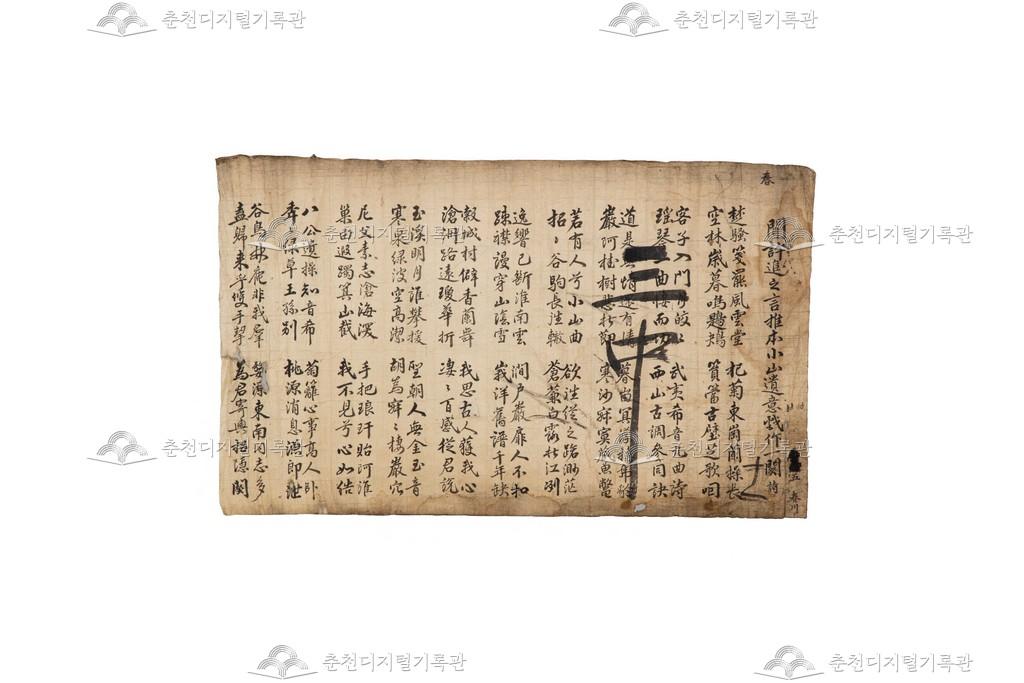 춘천디지털기록관
춘천디지털기록관
春
之言推本小山遺意戱作
楚騷箋罷風雲堂 杞菊東崗
空林歲暮鳴鶗鴂 篔簹古壁
客子入門 武夷希音九曲詩
瑤琴 曲悽而 西山古調參同訣
道是 還有情
巖阿桂樹悲 寒沙寂寞
若有人兮小山曲 欲往從之路渺茫
招〻谷駒長往轍 蒼蒹白露
逸響已斷淮南雲 澗戶巖扉人不和
踈襟謾穿山陰雪 峩洋舊譜千年缺
穀城村僻香蘭舞 我思古人獲我心
滄洲路遠瓊華折 凄〻百感從君說
玉溪明月誰攀援 聖朝人無金玉音
寒泉綠波空高潔 胡爲寂〻棲巖穴
尼父素志滄海深 手把琅玕貽河淮
巢由遐躅箕山截 我不見兮心如結
八公遺操知音希 菊籬心事高人卧
綠草王孫別 桃源消息漁郎泄
谷鳥林鹿非我羣 源東南同志多
盍歸來乎雙手挈 爲君寄與招隱闋
三中
五 春川
춘천디지털기록관
춘천디지털기록관
춘천디지털기록관
춘천디지털기록관
춘천디지털기록관
춘천디지털기록관